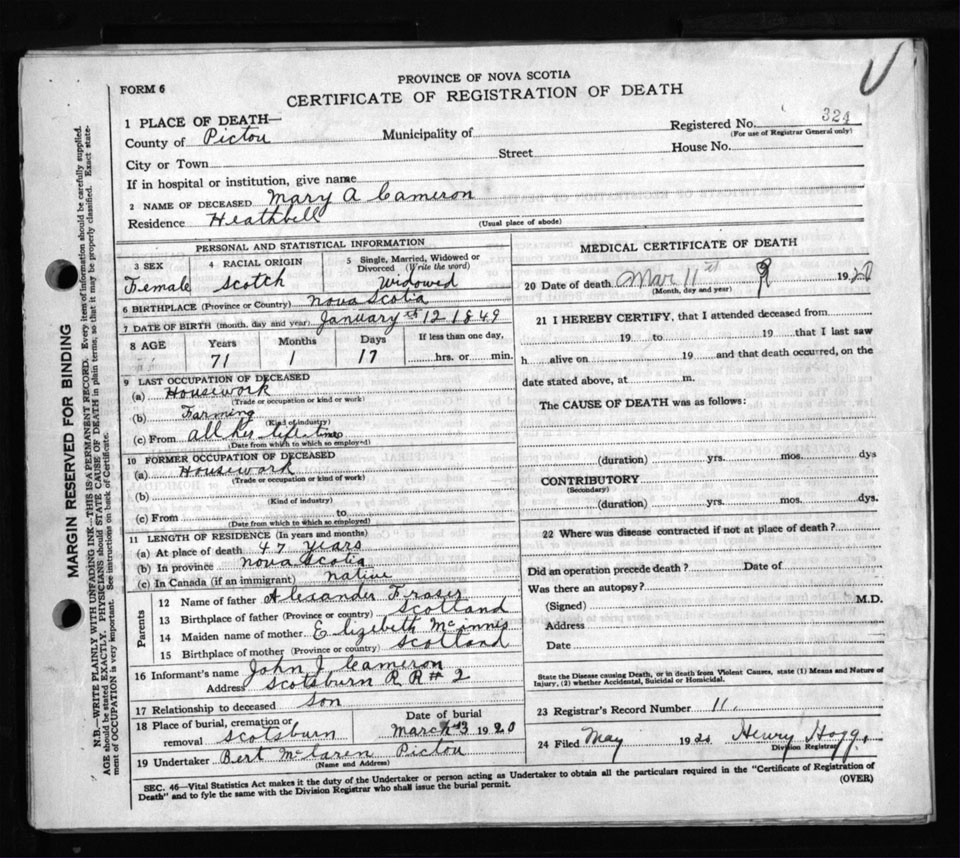 FORM 6
PROVINCE OF NOVA SCOTIA
CERTIFICATE OF REGISTRATION OF DEATH
1 PLACE OF DEATH—
Registered No. 324
(For use of Registrar General only)
County of Pictou Municipality of
City or Town Street House No.
If in hospital or institution, give name
2 NAME OF DECEASED Mary A Cameron
Residence Heathbell
(Usual place of abode)
PERSONAL AND STATISTICAL INFORMATION
3 SEX 4 RACIAL ORIGIN 5 Single, Married, Widowed or Divorced (Write the word)
Female Scotch Widowed
6 BIRTHPLACE (Province or Country) Nova Scotia
7 DATE OF BIRTH (month, day and year) January 12 1849
8 AGE Years Months Days If less than one day,
71 1 17 hrs. or min.
9 LAST OCCUPATION OF DECEASED
(a) Housework
(Trade or occupation or kind or work)
(b) Farming
(Kind of industry)
(c) From all her life time
(Date from which to which so employed)
10 FORMER OCCUPATION OF DECEASED
(a) Housework
(Trade or occupation or kind of work)
(b)
(Kind of industry)
(c) From to
(Date from which to which so employed)
11 LENGTH OF RESIDENCE (In years and months)
(a) At place of death 47 years
(b) In province Nova Scotia
(c) In Canada (if an immigrant) native
Parents
12 Name of father Alexander Fraser
13 Birthplace of father (Province or country) Scotland
14 Maiden name of mother Elizibeth McInnis
15 Birthplace of mother (Province or country) Scotland
16 Informant's name John J Cameron
Address Scotsburn R R # 2
17 Relationship to deceased Son
18 Place of burial, cremation or removal Scotsburn
Date of burial
March 13 1920
19 Undertaker Bert McLaren Pictou
(Name and Address)
MEDICAL CERTIFICATE OF DEATH
20 Date of death Mar 11th 1920
(Month, day and year)
21 I HEREBY CERTIFY, that I attended deceased from
19 to 19 that I last saw
h alive on 19 and that death occurred, on the
date stated above, at m.
The CAUSE OF DEATH was as follows:
(duration) yrs. mos. dys
CONTRIBUTORY
(Secondary)
(duration) yrs. mos. dys.
22 Where was disease contracted if not at place of death?
Did an operation precede death? Date of
Was there an autopsy?
(Signed) M.D.
Address
Date
State the Disease causing Death, or in death from Violent Causes, state (1) Means and Nature of
Injury, (2) whether Accidental, Suicidal or Homicidal.
23 Registrar's Record Number 11.
24 Filed May 1920 Henry Hogg
Division Registrar
SEC. 46—Vital Statistics Act makes it the duty of the Undertaker or person acting as Undertaker to obtain all the particulars required in the "Certificate of Registration of
Death" and to fyle the same with the Division Registrar who shall issue the burial permit.
(OVER)
MARGIN RESERVED FOR BINDING
N.B.—WRITE PLAINLY WITH UNFADING INK—THIS IS A PERMANENT RECORD. Every item of information should be carefully supplied.
AGE should be stated EXACTLY. PHYSICIANS should STATE CAUSE OF DEATH in plain terms, so that it may be properly classified. Exact state-
ment of OCCUPATION is very important. See instructions on back of Certificate.